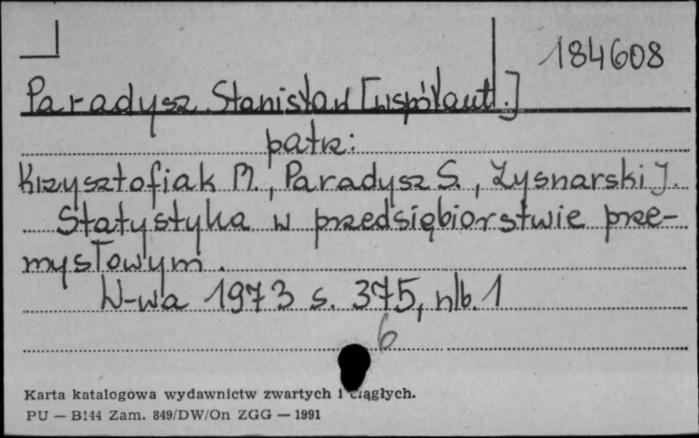 184608
Paradysz Stanisław [współaut.]
patrz:
Krzysztofiak M., Paradysz S., Łysnarski J.
Statystyka w przedsiębiorstwie prze-
mysłowym.
W-wa 1973 s. 375, nlb. 1
6
Karta katalogowa wydawnictw zwartych i ciągłych.
PU — B144 Zam. 849/DW/On ZGG — 1991